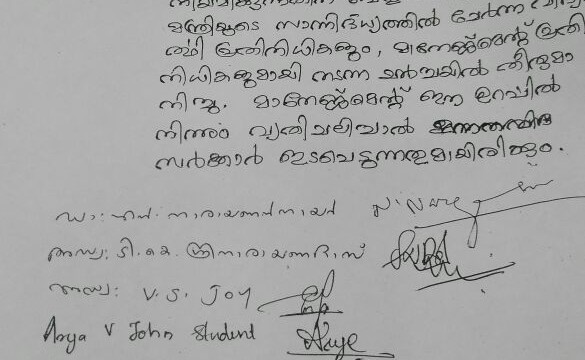 മന്ത്രിയുടെ സാന്നിദ്ധ്യത്തിൽ ചേർന്ന
ത്ഥി പ്രതിനിധികളും, മാനേജ്മെന്റ് പ്രതി
നിധികളുമായി നടന്ന ചർച്ചയിൽ തീരുമാ
നിച്ചു. മാനേജ്മെന്റ് ഈ ഉറപ്പിൽ
നിന്നും വ്യതിചലിച്ചാൽ
സർക്കാർ ഇടപെടുന്നതുമായിരിക്കും.
ഡോ: എൻ. നാരായണൻനായർ
അഡ്വ: ടി.കെ. ശ്രീനാരായണദാസ്
അഡ്വ: V.S. JOY
Arya V John Student Arya